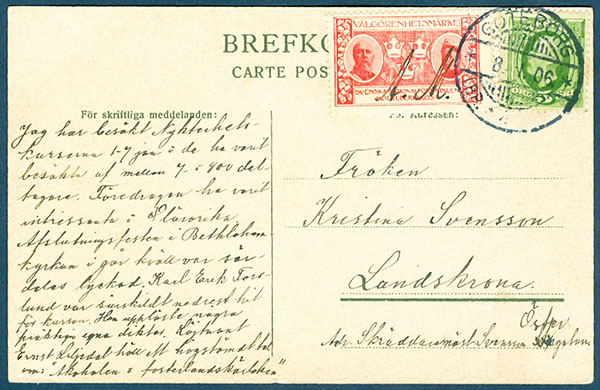 BREFKO
CARTE POS
VÄLGÖRENHETSMÄRKE
GÖTEBORG
8 1 06
5
A. M.
För skriftliga meddelanden:
För Adressen:
Jag har besökt Nykterhets-
kurserna 1-7 jan i de ha varit
besökta af mellan 7- à 800 del-
tagare. Föredragen ha varit
intressanta o lärorika.
Afslutningsfesten i Bethlehems
kyrkan i går kväll var sär-
deles lyckad. Karl Erik Fors-
lund var särskildt nedrest hit
för kursen. Han uppläste några
präktiga egna dikter. Löjtnant
Ernst Liljedal höll ett högstämdt tal
om: "Alkoholen o fosterlandskärleken"
Fröken
Kristina Svensson
Landskrona.
Adr. Skräddaremäst. Svensson
Öster